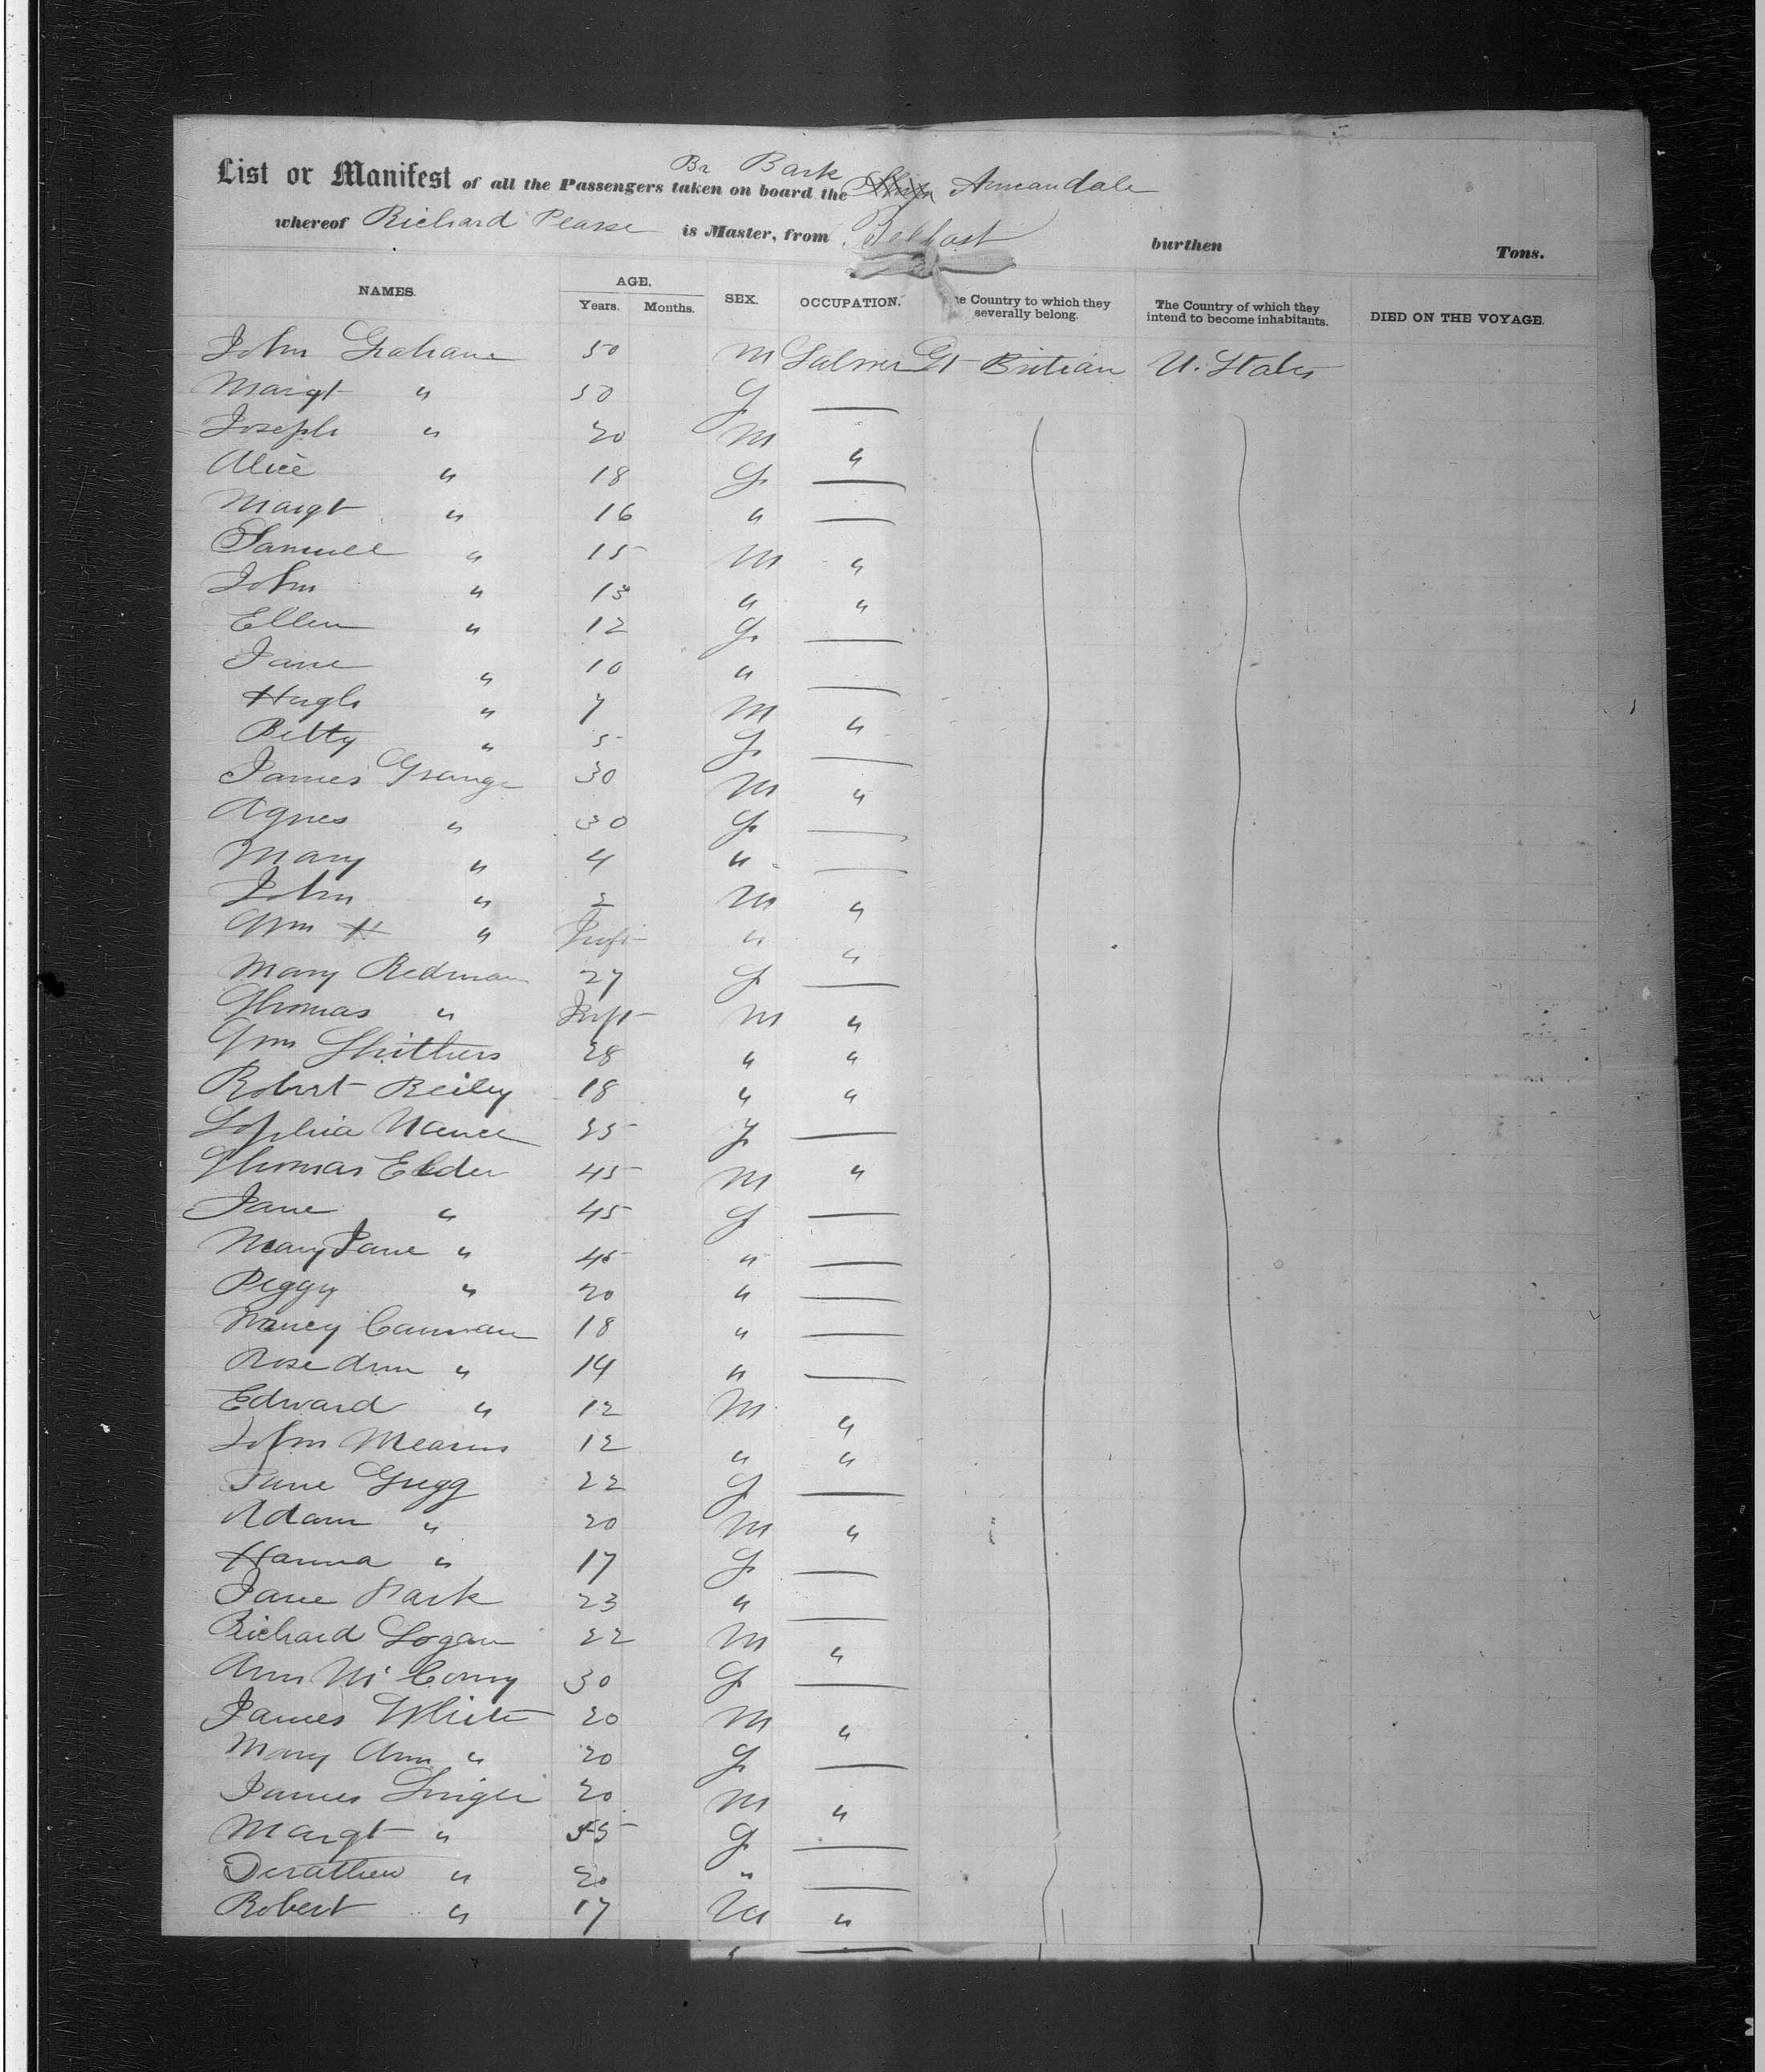 Br Bark
List or Manifest of all the Passengers taken on board the Ship Annandale
whereof Richard Pearse is Master, from Belfast burthen Tons.
NAMES. AGE. Years. Months. SEX. OCCUPATION. e Country to which they severally belong. The Country of which they intend to become inhabitants. DIED ON THE VOYAGE.
John Graham 50 M Gt Britian U. States
Margt " 50 F —
Joseph " 20 M "
Alice " 18 F —
Margt " 16 " —
Samuel " 15 M "
John " 13 " "
Ellen " 12 F —
Jane " 10 " —
Hugh " 7 M "
Betty " 5 F —
James Grange 30 M "
Agnes " 30 F —
Mary " 4 " —
John " 2 M "
Wm H " Inft " "
Mary Redman 27 F —
Thomas " Inft M "
Wm Smithers 28 " "
Robert Reiley 18 " "
Sophia Nance 25 F —
Thomas Elder 45 M "
Jane " 45 F —
Mary Jane " " —
Peggy " 20 " —
Nancy Cannan 18 " —
Rose Ann " 14 " —
Edward " 12 M "
John Mearns 12 " "
Jane Gregg 22 F —
Adam " 20 M "
Hanna " 17 F —
Jane Park 23 " —
Richard Logan 22 M "
Ann McComy 30 F —
James White 20 M "
Mary Ann " 20 F —
James 20 M "
Margt " 55 F —
" 20 " —
Robert " 17 M "